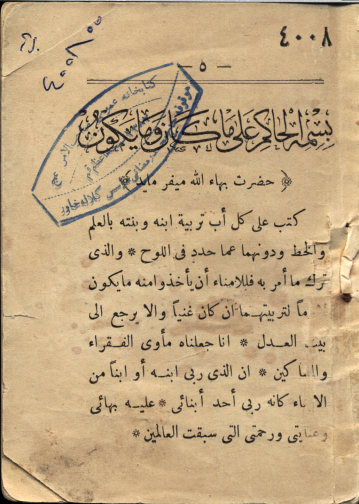 ٤٠٠٨
— ٥ —
بسمه الحاكم على ما كان وما يكون
﴿ حضرت بهاء الله ميفرمايد ﴾
كتب على كل أب تربية ابنه وبنته بالعلم
والخط ودونهما عما حدد فى اللوح * والذى
ترك ما أمر به فللامناء أن يأخذوا منه مايكون
ماً لتربيتهما ان كان غنياً والا يرجع الى
بيت العدل * انا جعلناه مأوى الفقراء
والمساكين * ان الذى ربى ابنه أو ابناً من
الابناء كانه ربى أحد أبنائى * عليه بهائى
وعنايتى ورحمتى التى سبقت العالمين *
كتابخانه